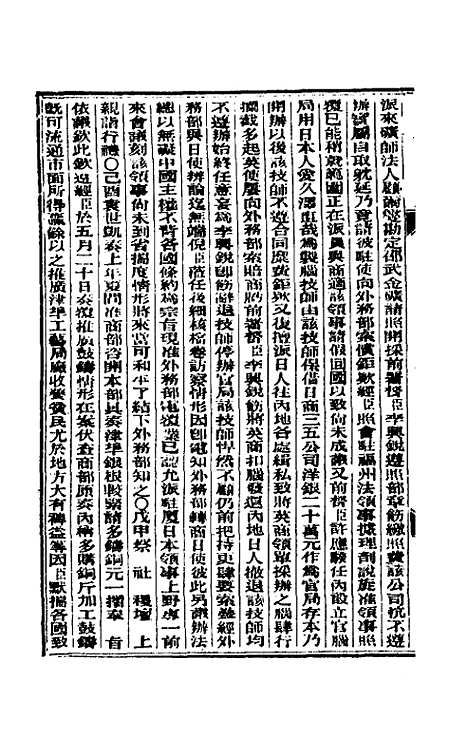 派來礦師法人勘定邵武金礦請照開採前署督臣李興銳遵照部章飭繳照費該公司抗不遵
辦實屬自取耽延乃竟請彼駐使向外務部索償鉅款經臣照會駐福州法領事據理剖說旋准領事照
覆已能稍就範圍正在派員與商適該領事請假回國以致尚未成議又前督臣許應騤任內設立官腦
局用日本人愛久澤直哉為製腦技師由該技師保借日商三五公司洋銀二十萬元作為官局存本乃
開辦以後該技師不遵合同糜費鉅款又復擅派日人往內地各處緝私致將英商領單採辦之腦肆行
攔截多起英使屢向外務部索賠商虧前署督臣李興銳飭將英商扣腦發還內地日人撤退該技師均
不遵辦始終任意妄為李興銳即飭辭退技師停辦官局該技師悍然不顧仍前把持更肆要索疊經外
務部與日使辯論迄無端倪臣蒞任後細核檔卷訪察情形因即電知外務部轉商日使彼此另議辦法
總以無礙中國主權不背各國條約為宗旨現准外務部電復業已認允派駐廈日本領事上野專一前
來會議刻該領事尚未到省揣度情形將來當可和平了結下外務部知之〇戊申祭　社　稷壇　上
親詣行禮〇己酉袁世凱奏上年夏間准商部咨開本部具奏津準銀根緊請多鑄銅元一摺奉　旨
依議欽此欽遵經臣於五月二十日奏復推廣鼓鑄情形在案伏查商部原奏內稱多購銅斤加工鼓鑄
既可流通市面所得贏餘以之推廣津準工藝局廠收養貧民尤於地方大有裨益等因臣默揣各國致